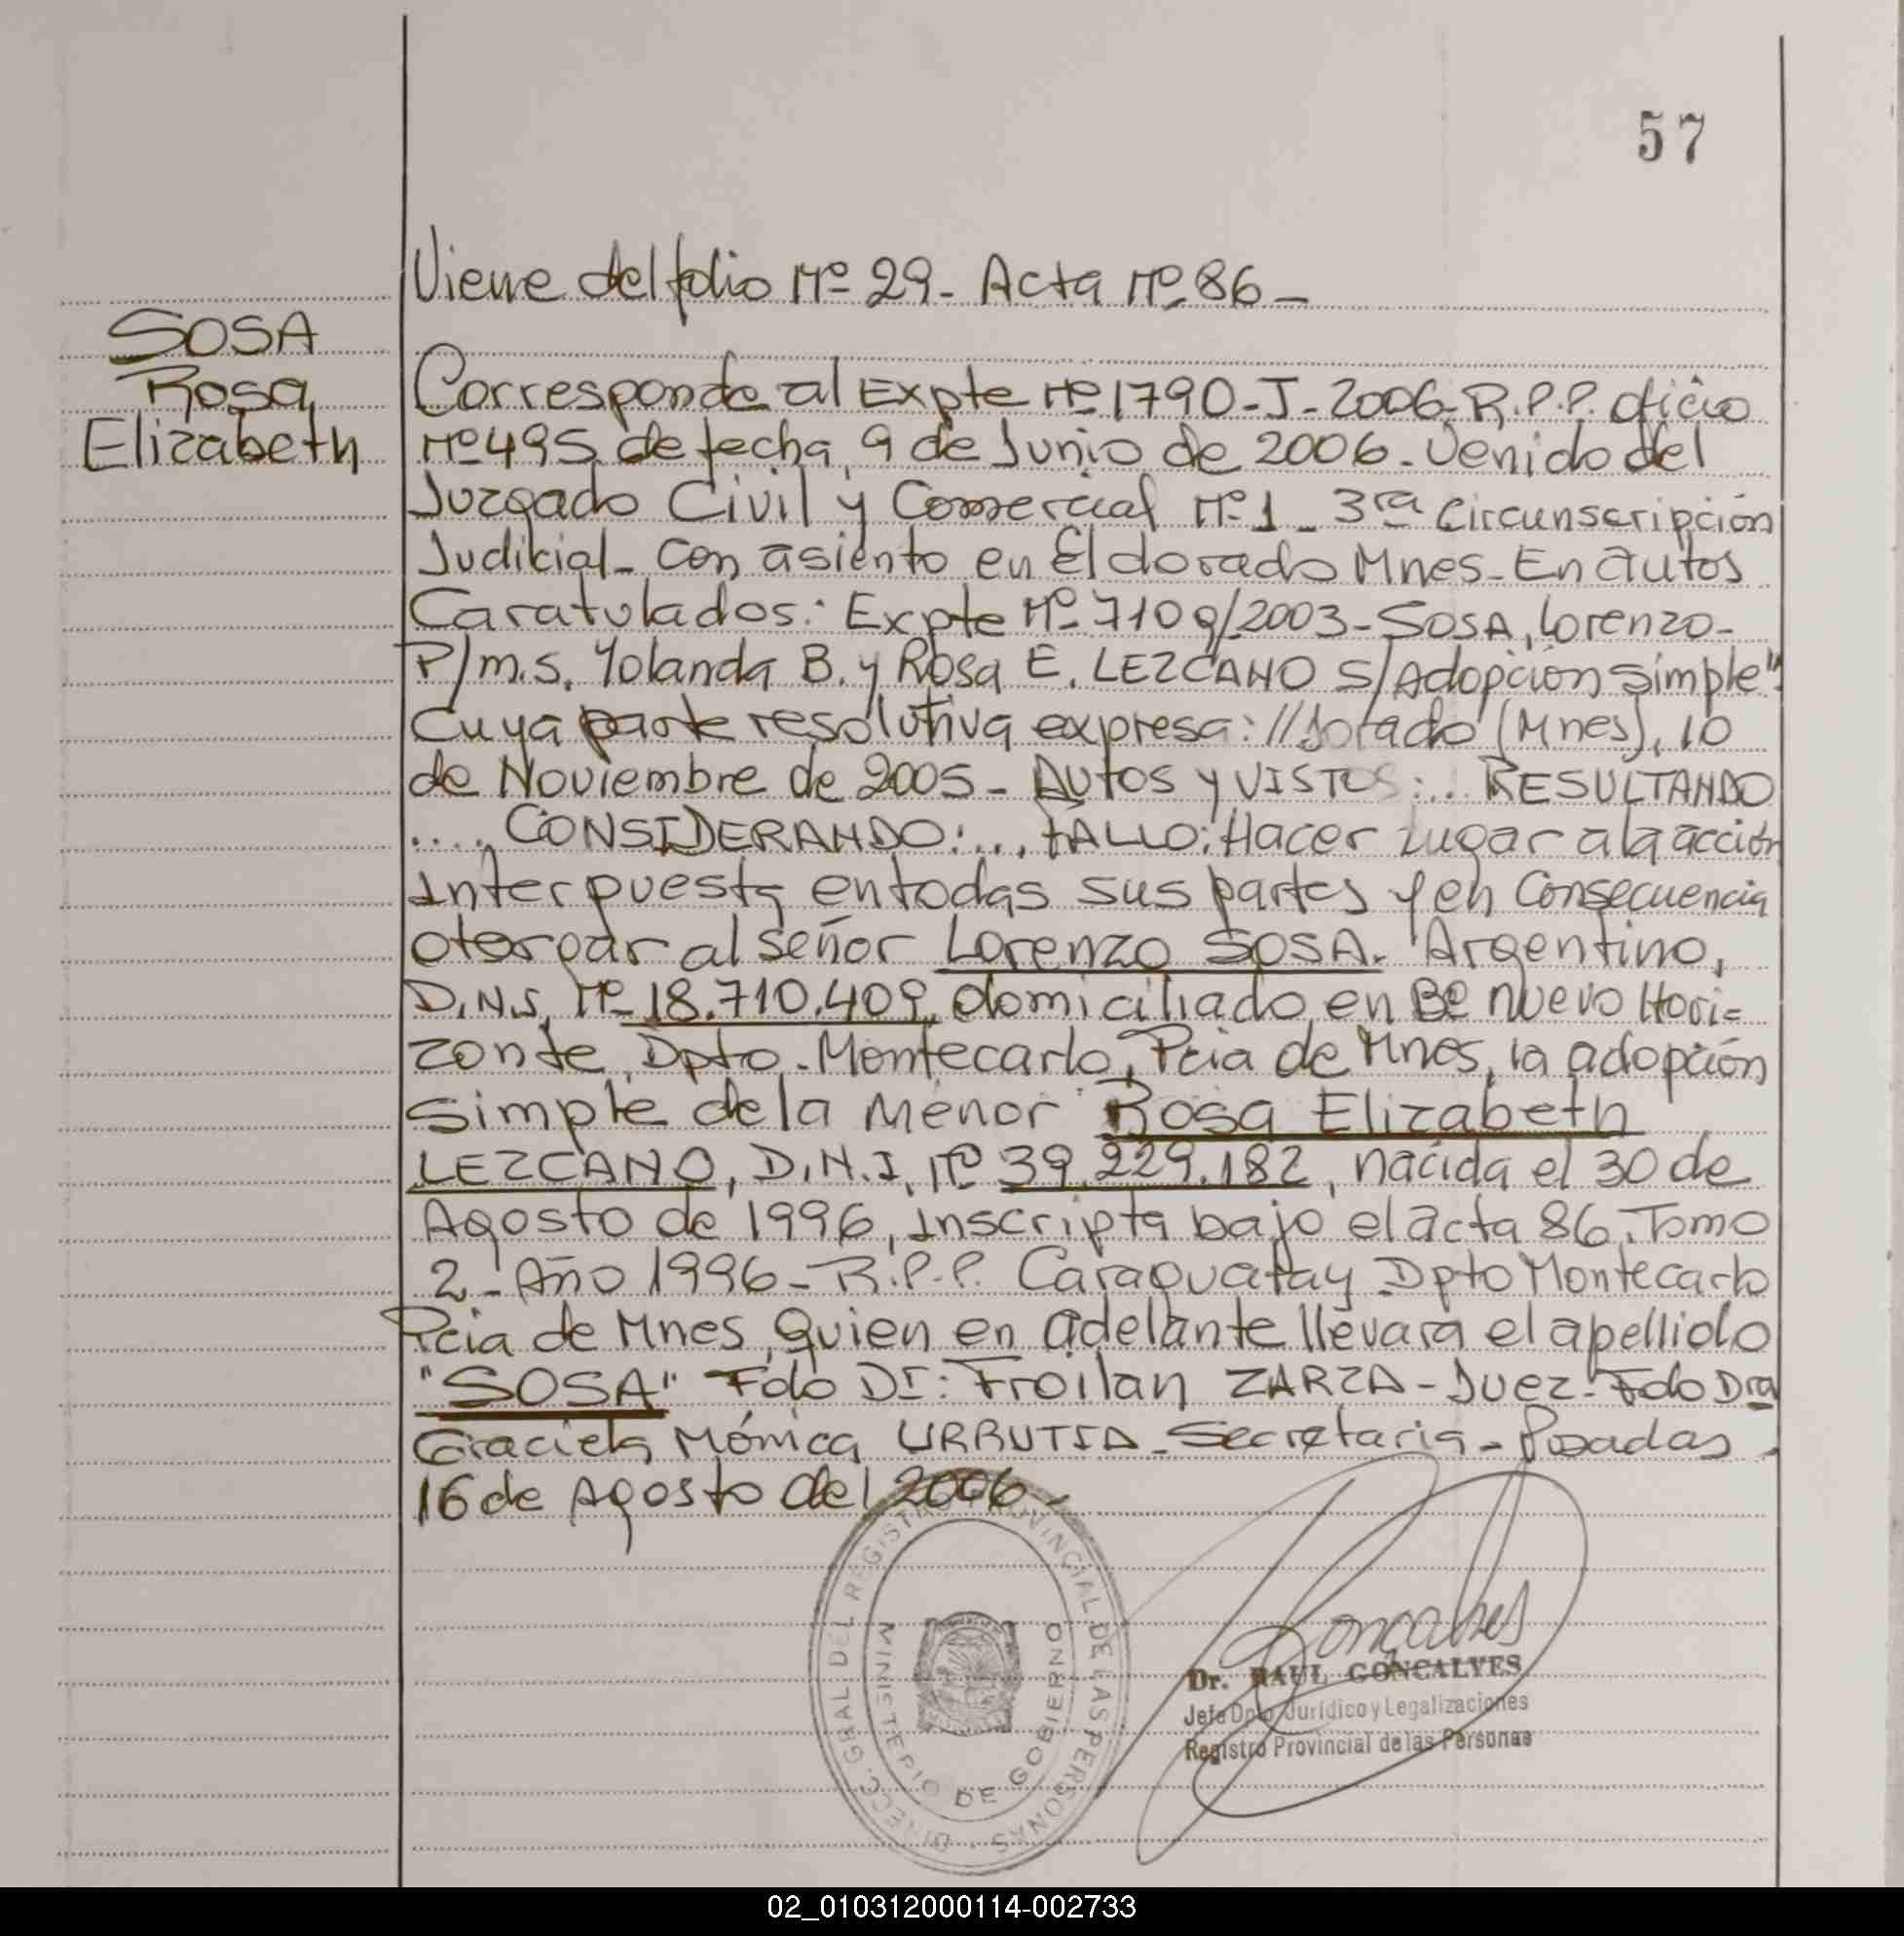 57
Viene del folio Nº 29- Acta Nº 86-
SOSA
Rosa
Elizabeth
Corresponde al Expte Nº 1790-J-2006-R.P.P. oficio
Nº 495 de fecha, 9 de Junio de 2006. Venido del
Juzgado Civil y Comercial Nº 1 - 3ra Circunscripción
Judicial- con asiento en Eldorado Mnes- En autos
Caratulados: Expte Nº 7109/2003-SOSA, Lorenzo-
P/m.s. Yolanda B. y Rosa E. LEZCANO S/Adopción Simple".
Cuya parte resolutiva expresa: //dorado (Mnes), 10
de Noviembre de 2005- AUTOS Y VISTOS:.. RESULTANDO
.... CONSIDERANDO:... FALLO: Hacer lugar a la acción
Interpuesta en todas sus partes y en Consecuencia
otorgar al señor Lorenzo SOSA. Argentino,
D.N.I. Nº 18.710.409, domiciliado en Bº nuevo Hori=
zonte, Dpto. Montecarlo, Pcia de Mnes, la adopción
simple de la menor Rosa Elizabeth
LEZCANO, D.N.I. Nº 39.229.182, nacida el 30 de
Agosto de 1996, Inscripta bajo el acta 86. Tomo
2- Año 1996- R.P.P. Caraguatay Dpto Montecarlo
Pcia de Mnes, Quien en adelante llevara el apellido
"SOSA" Fdo Dr: Froilan ZARZA- Juez- Fdo Dra
Graciela Mónica URRUTIA- Secretaria- Posadas,
16 de Agosto del 2006-
DIRECC. GRAL DEL REGISTRO PROVINCIAL DE LAS PERSONAS
MINISTERIO DE GOBIERNO
Goncalves
Dr. RAUL GONCALVES
Jefe Dpto Jurídico y Legalizaciones
Registro Provincial de las Personas
02_010312000114-002733